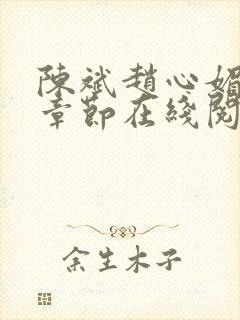 陳斌趙心媚
章節在綫閱
余生木子